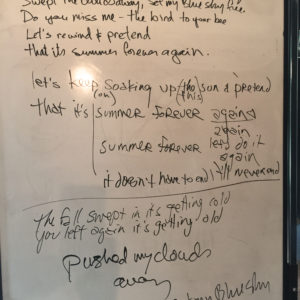 Swept the clouds away, set my Blue sky free.
Do you miss me - the bird to your bee
Let's rewind & pretend
that it's summer forever again.
let's keep soaking up (the) sun & pretend
(on) (this)
that it's summer forever again
again
summer forever let's do it
again
it doesn't have to end it'll never end
The fall swept in it's getting cold
You left again it's getting old
pushed my clouds
away
Blue sky